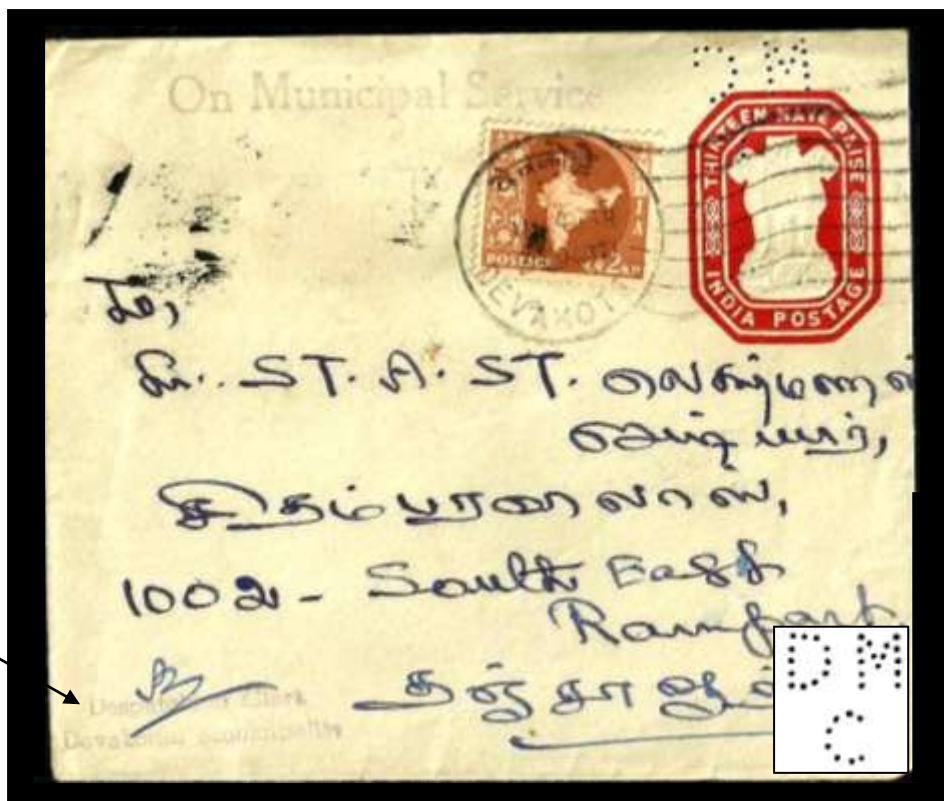 D M
On Municipal Service
THIRTEEN NAYE PAISE
INDIA POSTAGE
POSTAGE 2 NP
DEVAKOT
ST. A. ST.
செட்டியார்,
சிதம்பரவிலாஸ்,
1002 - South East
Rampart
தஞ்சாவூர்
Despatching Clerk
Devakottai Municipality
D M
C